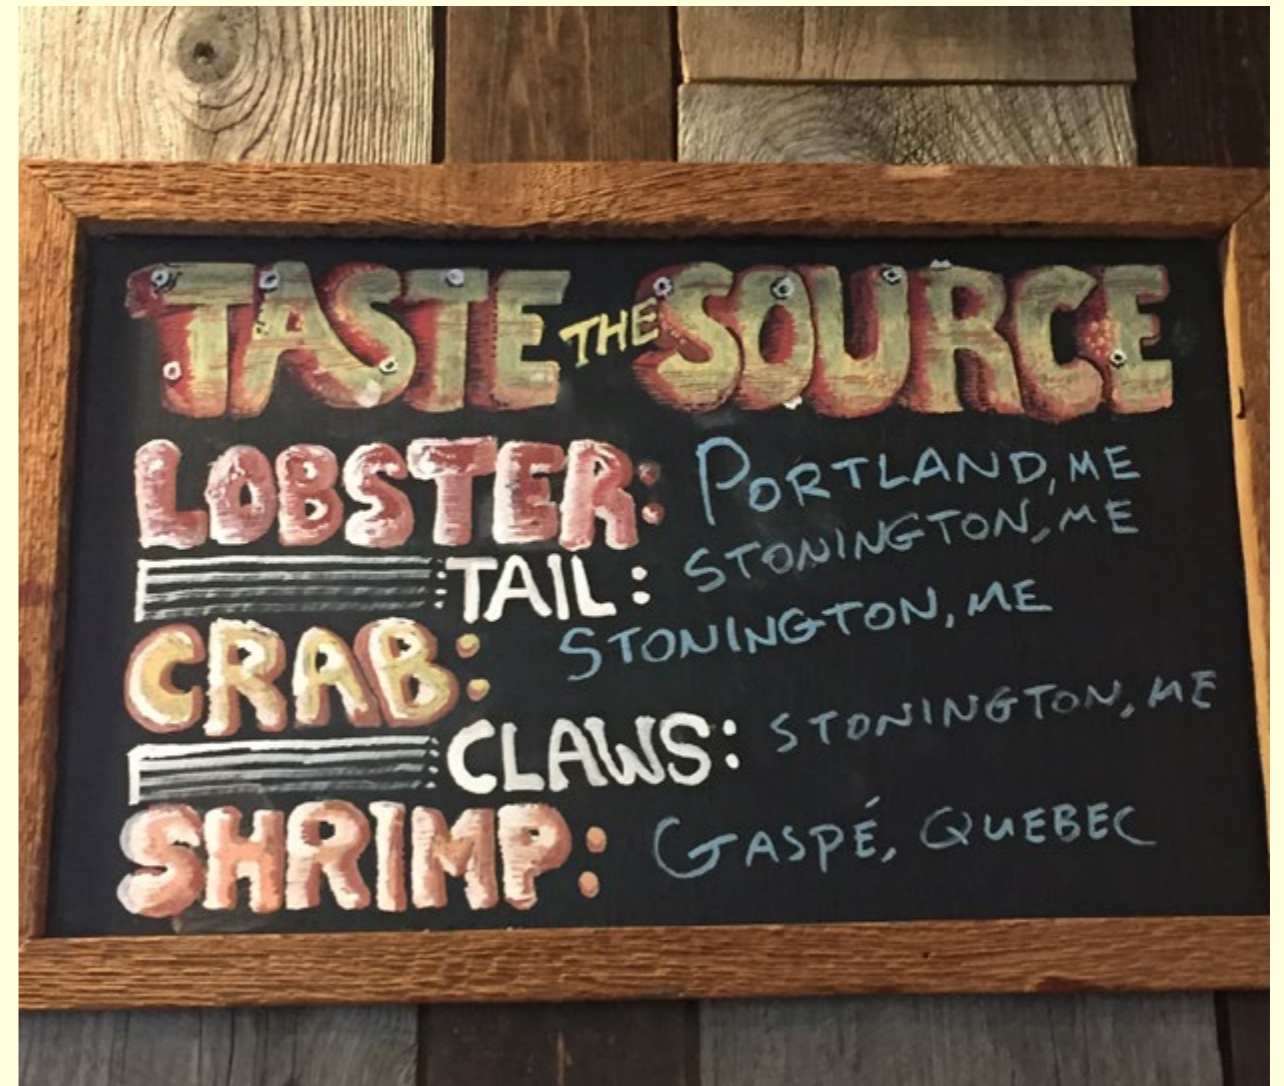 TASTE THE SOURCE
LOBSTER: PORTLAND, ME
TAIL: STONINGTON, ME
CRAB: STONINGTON, ME
CLAWS: STONINGTON, ME
SHRIMP: GASPÉ, QUEBEC